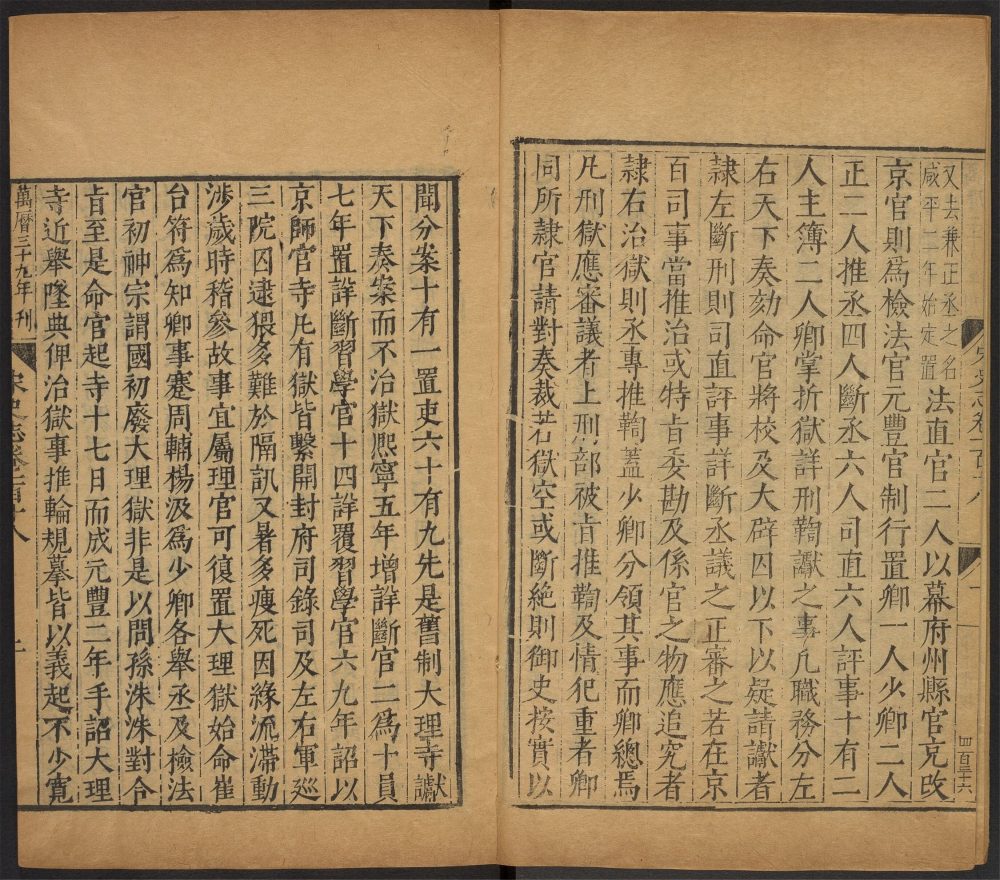 又去兼正丞之名
咸平二年始定置
法直官二人以幕府州縣官充改
京官則爲檢法官元豐官制行置卿一人少卿二人
正二人推丞四人斷丞六人司直六人評事十有二
人主簿二人卿掌折獄詳刑鞫讞之事凡職務分左
右天下奏劾命官將校及大辟囚以下以疑請讞者
隷左斷刑則司直評事詳斷丞議之正審之若在京
百司事當推治或特旨委勘及係官之物應追究者
隷右治獄則丞專推鞫蓋少卿分領其事而卿總焉
凡刑獄應審議者上刑部被旨推鞫及情犯重者卿
同所隷官請對奏裁若獄空或斷絶則御史按實以
四百三十六
聞分案十有一置吏六十有九先是舊制大理寺讞
天下奏案而不治獄熙寧五年增詳斷官二爲十員
七年置詳斷習學官十四詳覆習學官六九年詔以
京師官寺凡有獄皆繫開封府司錄司及左右軍巡
三院囚逮猥多難於隔訊又暑多瘦死因緣流滯動
涉歲時稽參故事宜屬理官可復置大理獄始命崔
台符爲知卿事蹇周輔楊汲爲少卿各舉丞及檢法
官初神宗謂國初廢大理獄非是以問孫洙洙對合
旨至是命官起寺十七日而成元豐二年手詔大理
寺近舉墜典俾治獄事推輪規摹皆以義起不少寛
萬曆三十九年刊
宋史志卷一百十八